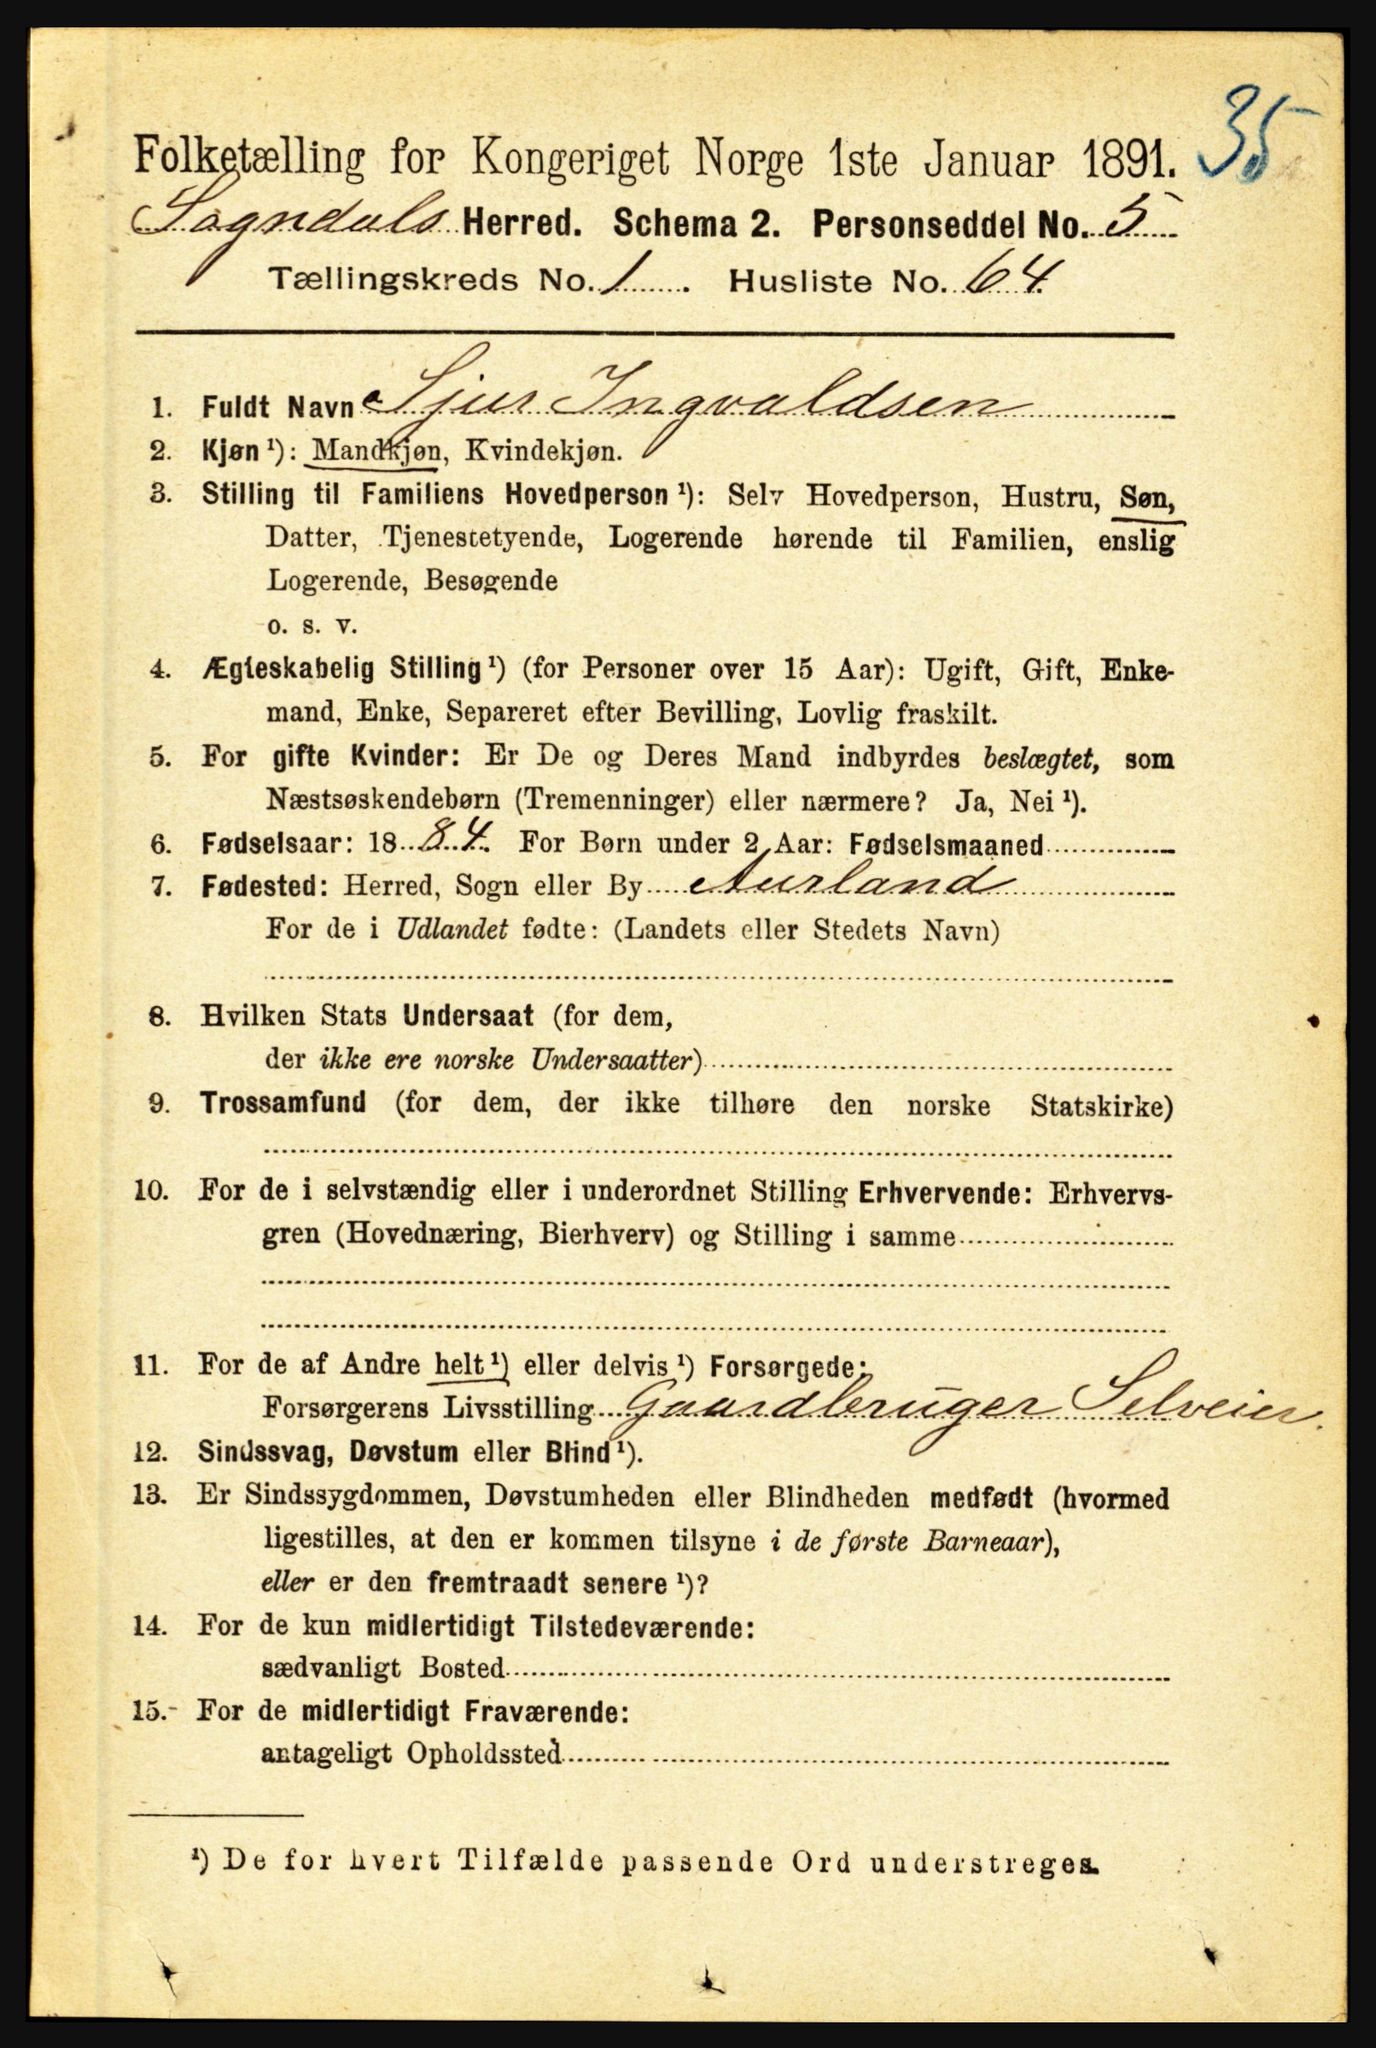 35
Folketælling for Kongeriget Norge 1ste Januar 1891.
Sogndals Herred. Schema 2. Personseddel No. 5
Tællingskreds No. 1. Husliste No. 64.
1. Fuldt Navn Sjur Ingvaldsen
2. Kjøn ¹): Mandkjøn, Kvindekjøn.
3. Stilling til Familiens Hovedperson ¹): Selv Hovedperson, Hustru, Søn,
Datter, Tjenestetyende, Logerende hørende til Familien, enslig
Logerende, Besøgende
o. s. v.
4. Ægteskabelig Stilling ¹) (for Personer over 15 Aar): Ugift, Gift, Enke-
mand, Enke, Separeret efter Bevilling, Lovlig fraskilt.
5. For gifte Kvinder: Er De og Deres Mand indbyrdes beslægtet, som
Næstsøskendebørn (Tremenninger) eller nærmere? Ja, Nei ¹).
6. Fødselsaar: 1884. For Børn under 2 Aar: Fødselsmaaned
7. Fødested: Herred, Sogn eller By Aurland
For de i Udlandet fødte: (Landets eller Stedets Navn)
8. Hvilken Stats Undersaat (for dem,
der ikke ere norske Undersaatter)
9. Trossamfund (for dem, der ikke tilhøre den norske Statskirke)
10. For de i selvstændig eller i underordnet Stilling Erhvervende: Erhvervs-
gren (Hovednæring, Bierhverv) og Stilling i samme
11. For de af Andre helt ¹) eller delvis ¹) Forsørgede:
Forsørgerens Livsstilling Gaardbruger Selveier.
12. Sindssvag, Døvstum eller Blind ¹).
13. Er Sindssygdommen, Døvstumheden eller Blindheden medfødt (hvormed
ligestilles, at den er kommen tilsyne i de første Barneaar),
eller er den fremtraadt senere ¹)?
14. For de kun midlertidigt Tilstedeværende:
sædvanligt Bosted
15. For de midlertidigt Fraværende:
antageligt Opholdssted
¹) De for hvert Tilfælde passende Ord understreges.